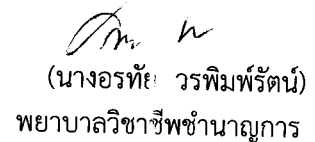 (นางอรทัย วรพิมพ์รัตน์)
พยาบาลวิชาชีพชำนาญการ